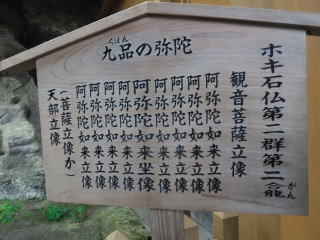 ホキ石仏第二群第二龕
がん
くほん
九品の弥陀
観音菩薩立像
阿弥陀如来立像
阿弥陀如来立像
阿弥陀如来立像
阿弥陀如来立像
阿弥陀如来坐像
阿弥陀如来立像
阿弥陀如来立像
阿弥陀如来立像
阿弥陀如来立像
(菩薩立像か)
天部立像